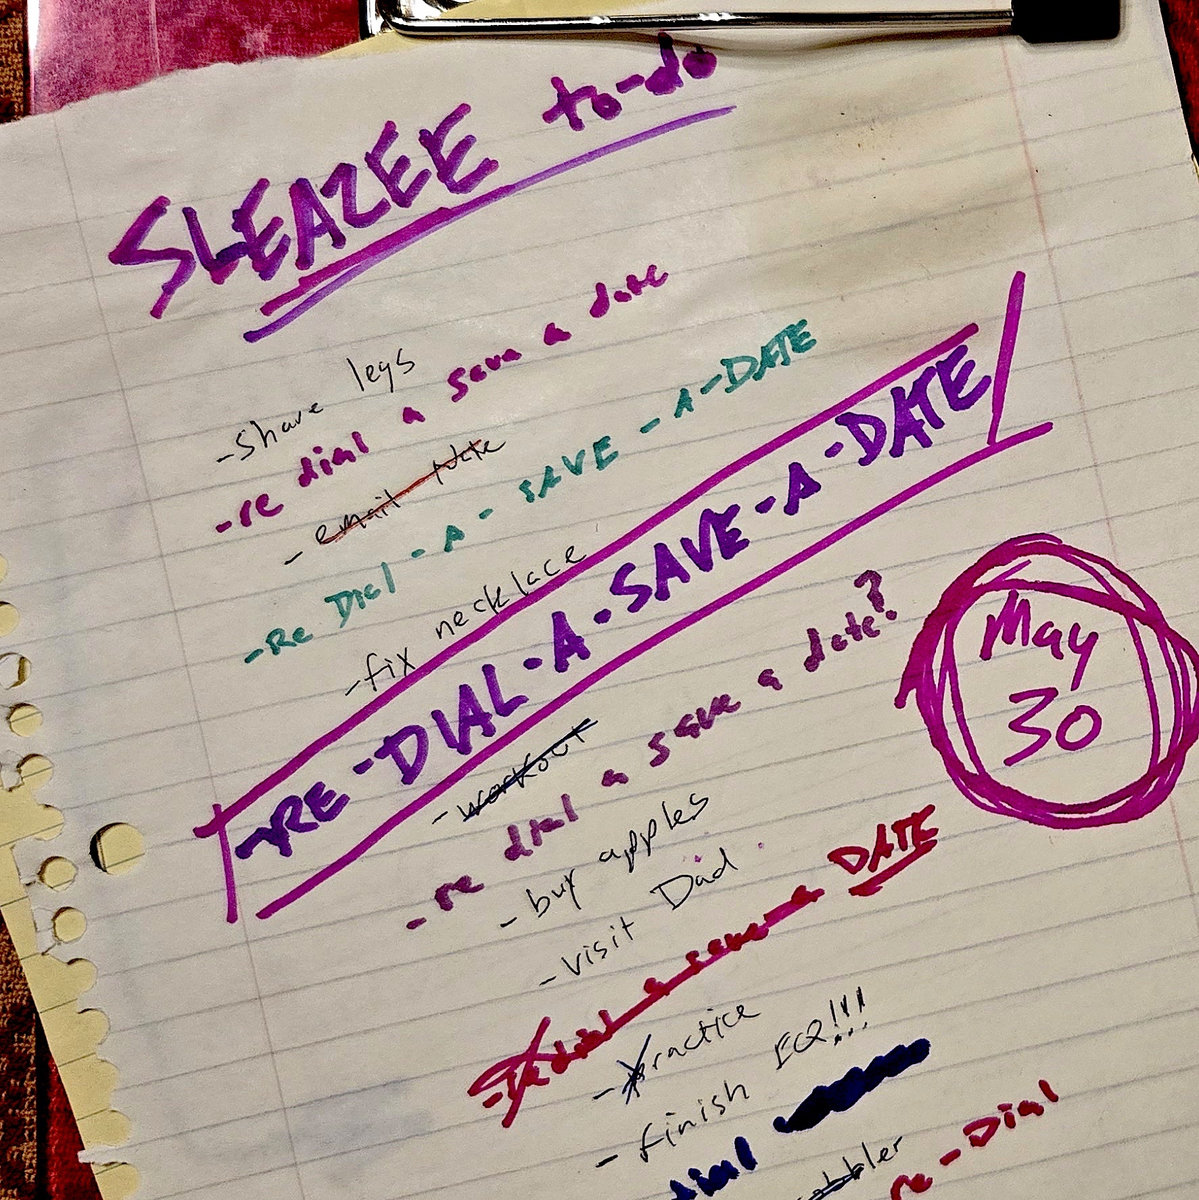 SLEAZEE to-do
- Shave legs
- re dial a save a date
- email
- Re Dial - A - SAVE - A - DATE
- fix necklace
- RE - DIAL - A - SAVE - A - DATE
May
30
- workout
- re dial a save a date?
- buy apples
- visit Dad
- re dial a save a DATE
- practice
- finish EQ!!!
dial
re - Dial